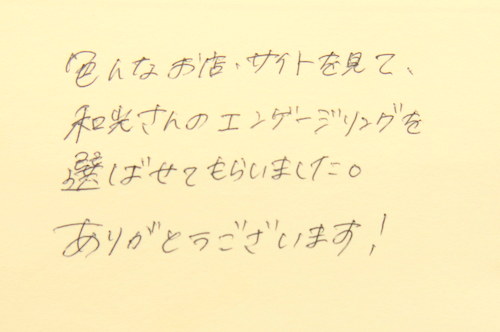 色んなお店・サイトを見て、
和光さんのエンゲージリングを
選ばせてもらいました。
ありがとうございます!